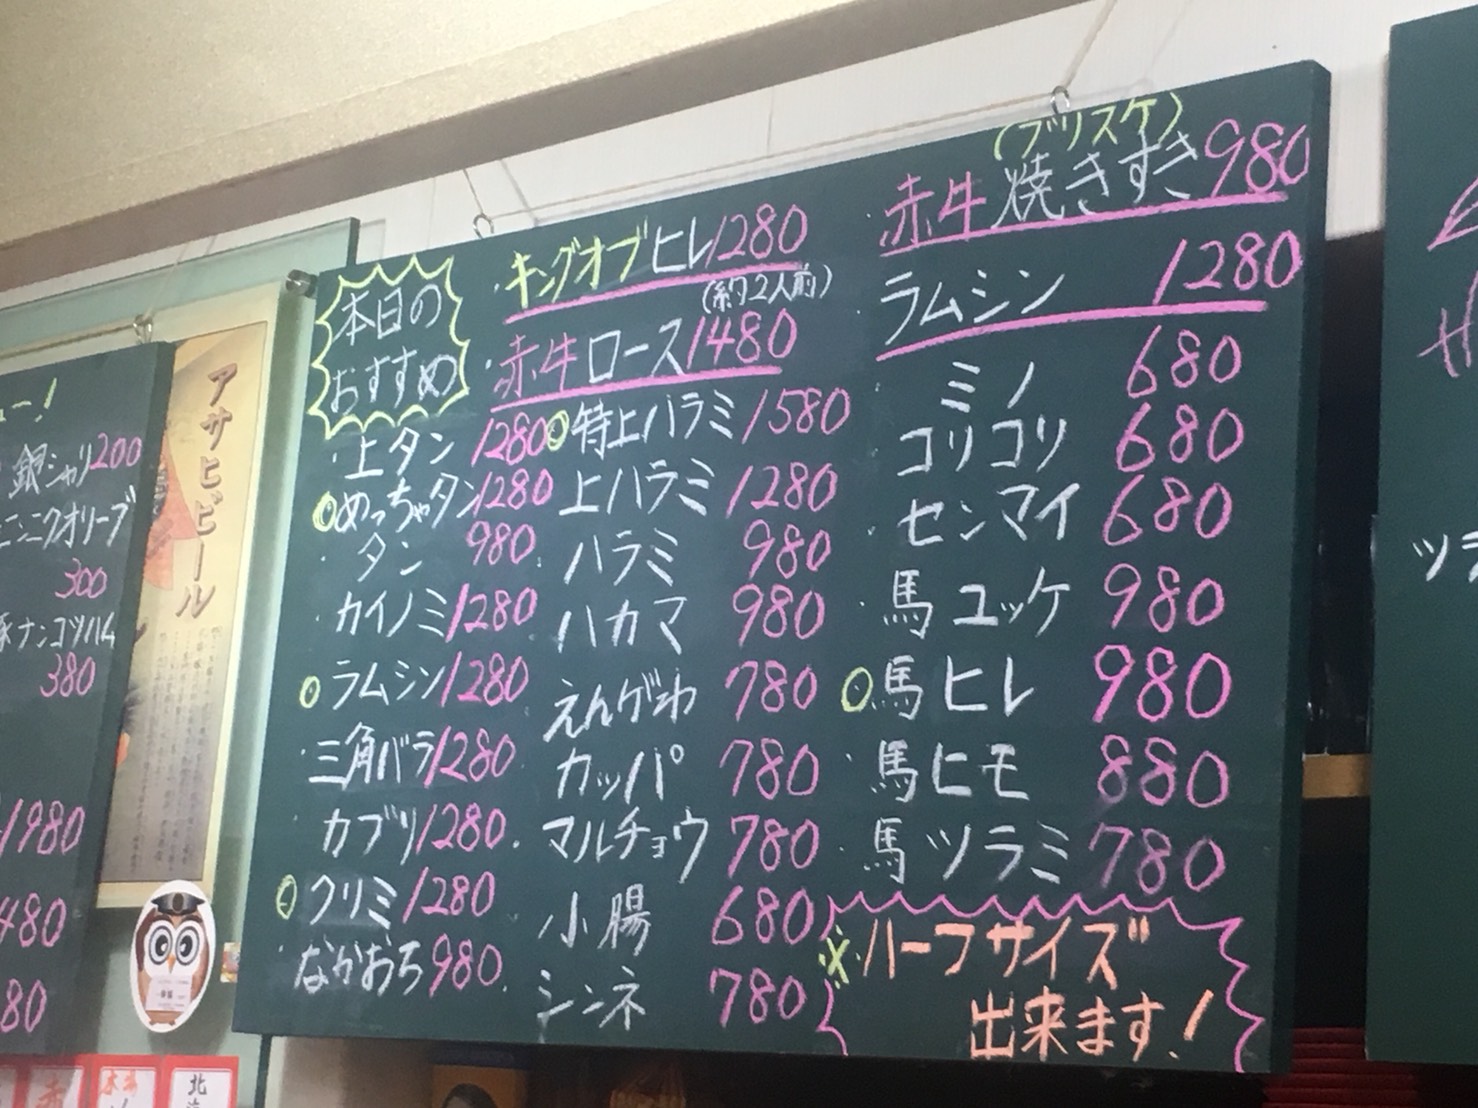 本日の
おすすめ
・上タン 1280
◎めっちゃタン 1280
・タン 980
・カイノミ 1280
◎ラムシン 1280
・三角バラ 1280
・カブリ 1280
◎クリミ 1280
・なかおち 980
・キングオブヒレ 1280
(約2人前)
・赤牛ロース 1480
◎特上ハラミ 1580
上ハラミ 1280
ハラミ 980
ハカマ 980
えんがわ 780
カッパ 780
・マルチョウ 780
・小腸 680
・シンネ 780
(ブリスケ)
・赤牛焼きすき 980
ラムシン 1280
ミノ 680
コリコリ 680
センマイ 680
・馬ユッケ 980
◎馬ヒレ 980
・馬ヒモ 880
・馬ツラミ 780
※ハーフサイズ
出来ます!
ュー!
銀シャリ 200
ニンニクオリーブ
300
ナンコツハム
380
1980
480
80
アサヒビール
北
ツラ